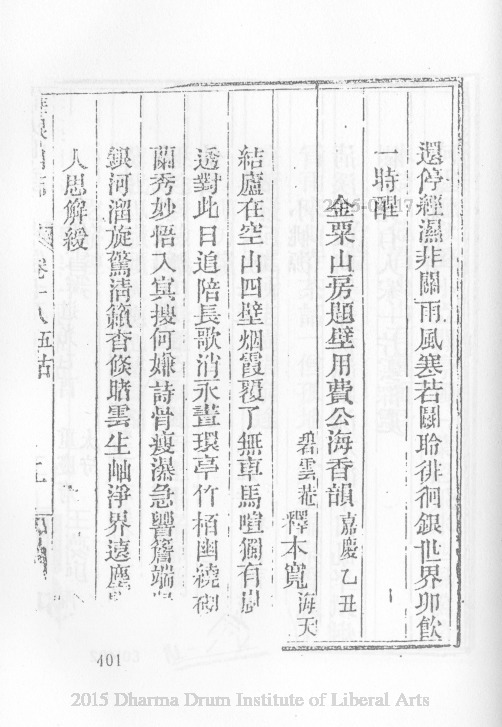 還停經濕非關雨風寒若關聆徘徊銀世界卯飲
一時醒
金粟山房題壁用費公海香韻 嘉慶乙丑
碧雲菴 釋本寬 海天
結廬在空山四壁烟霞覆了無車馬喧獨有
透對此日追陪長歌消永晝環亭竹栢幽繞砌
蘭秀妙悟入冥搜何嫌詩骨瘦瀑急響簷端
銀河溜旋驚清籟杳倐睹雲生岫淨界遠塵
人思解緩
卷十八五古
401
2015 Dharma Drum Institute of Liberal Arts